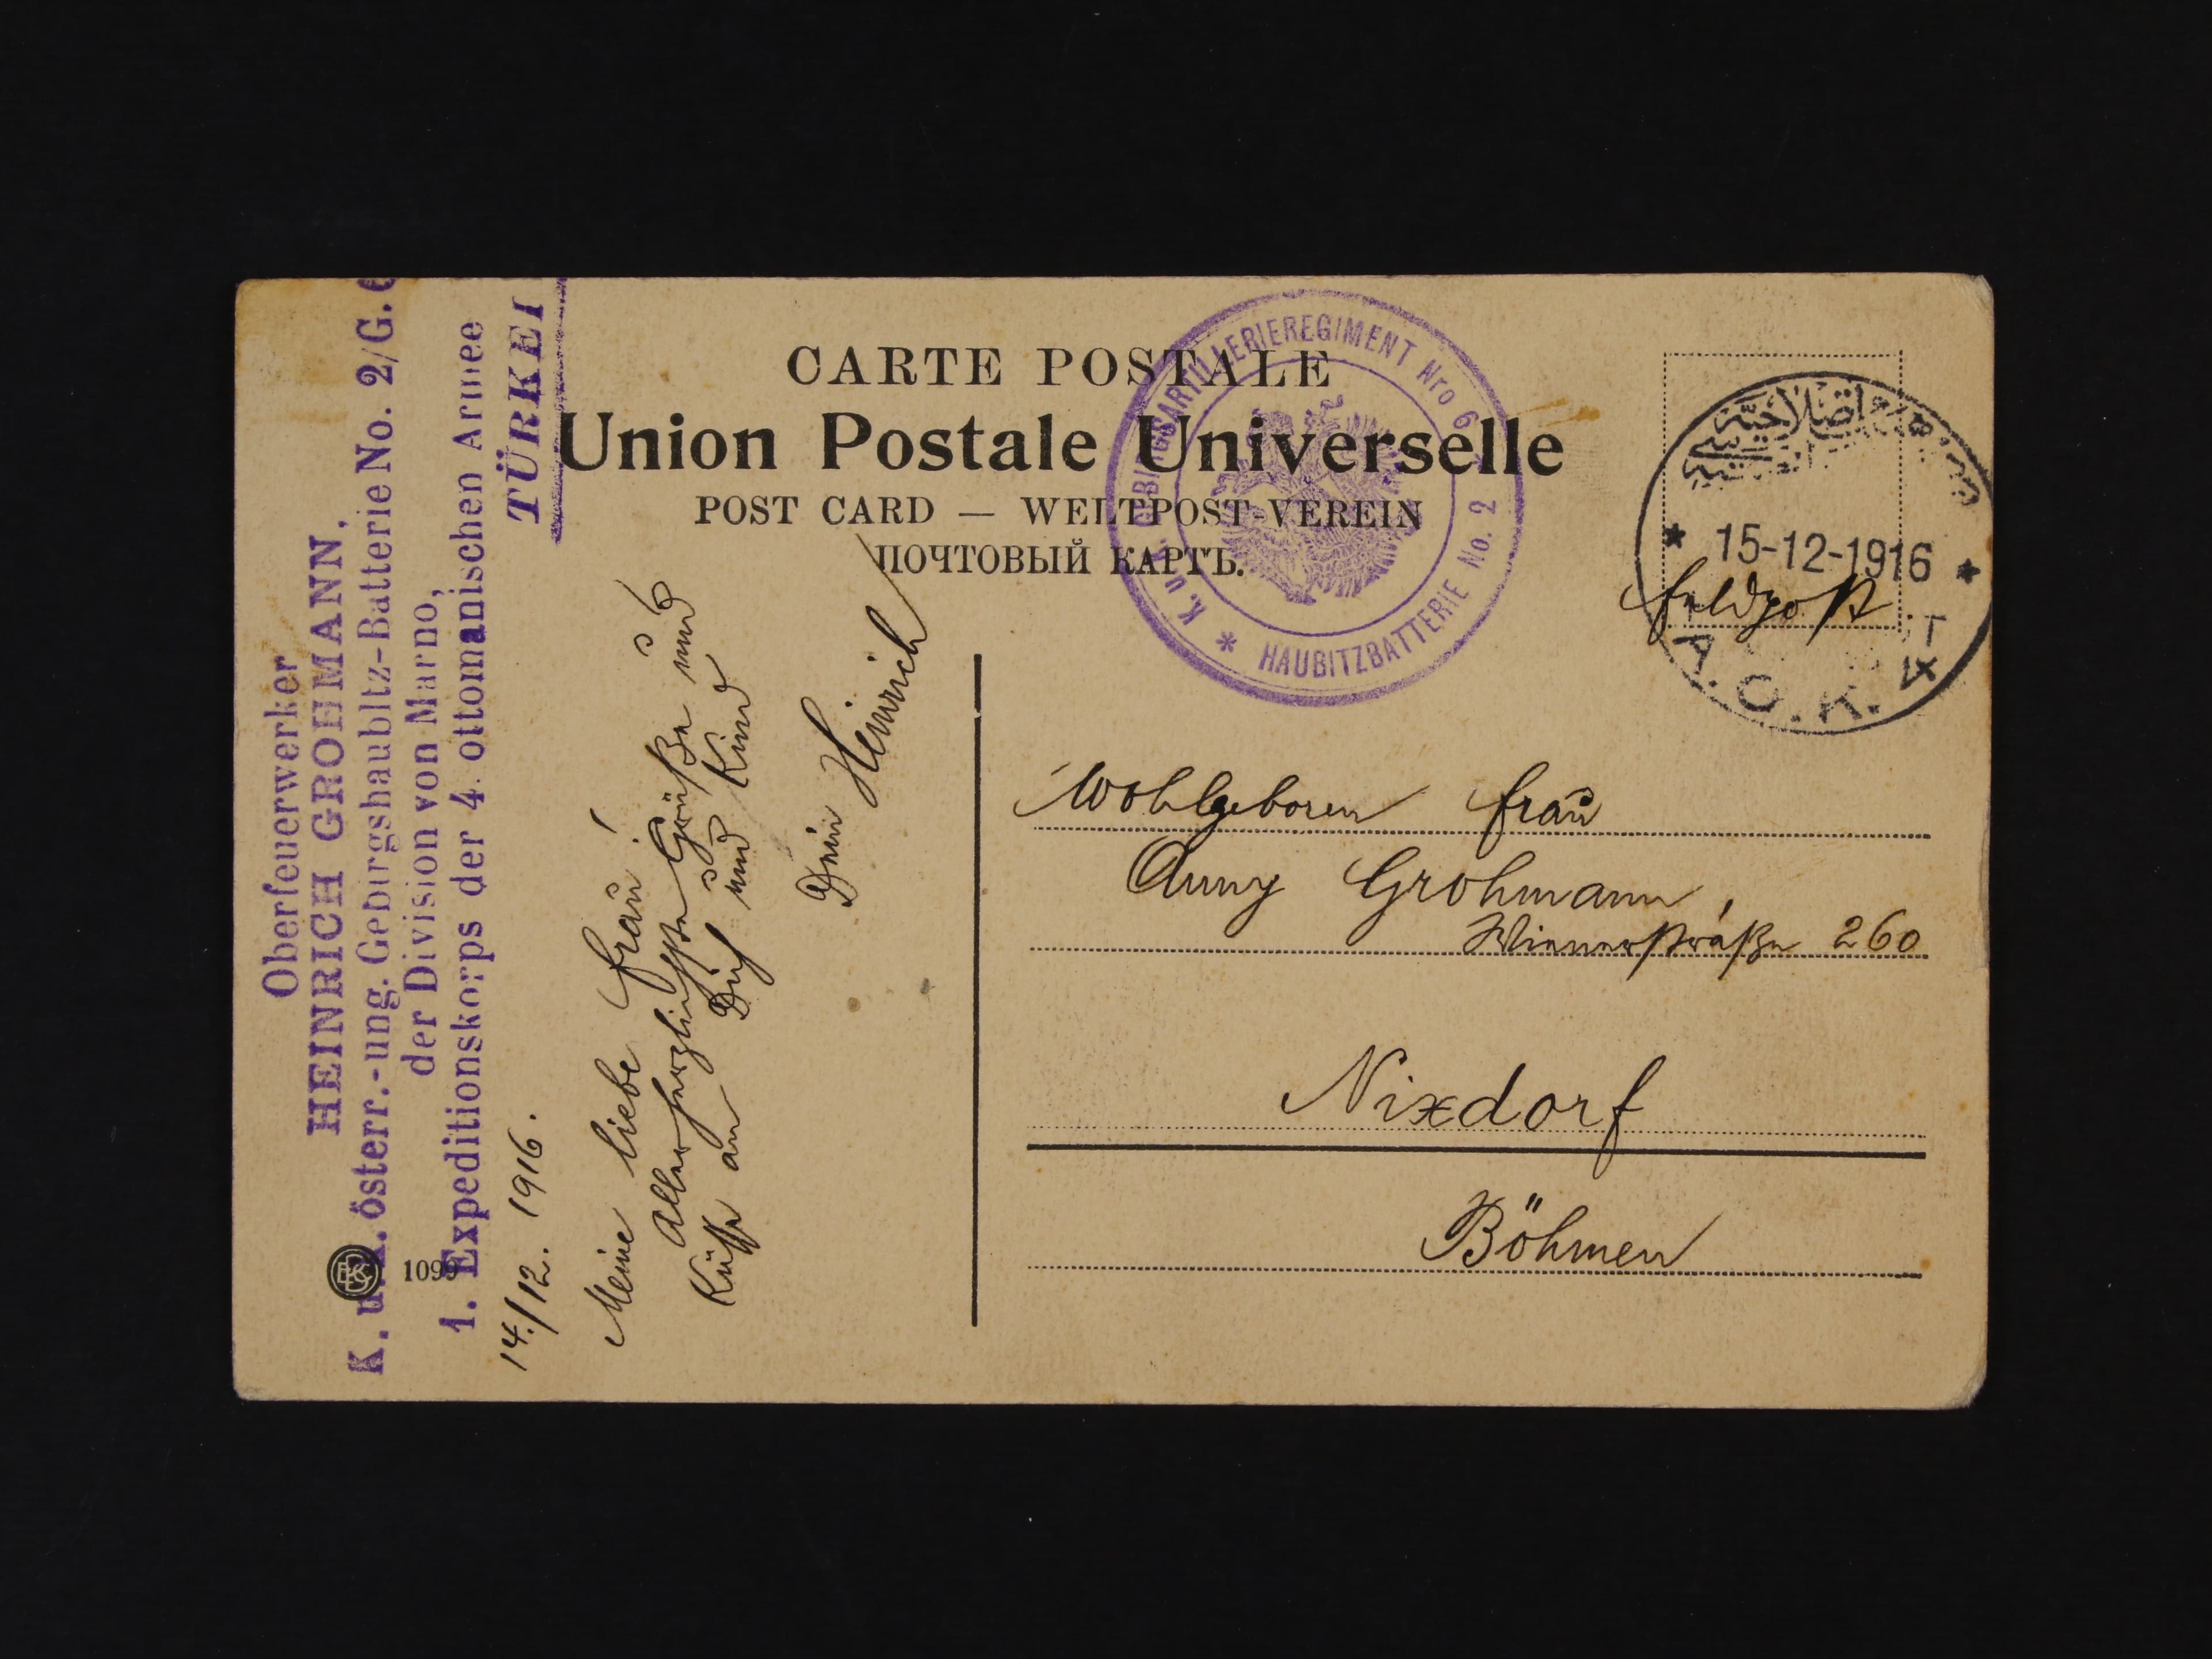 Oberfeuerwerker
HEINRICH GROHMANN,
K. u. k. österr.-ung. Gebirgshaubitz-Batterie No. 2/G. 6
der Division von Marno,
1. Expeditionskorps der 4. ottomanischen Armee
TÜRKEI
1099
14./12. 1916.
Meine liebe Frau!
Allerherzlingste Grüße und
Küsse an Dich und Kind
Dein Heinrich
CARTE POSTALE
Union Postale Universelle
POST CARD — WELTPOST-VEREIN
ПОЧТОВЫЙ КАРТЪ.
K. u. k. GEBIRGSARTILLERIEREGIMENT Nro 6
* HAUBITZBATTERIE No. 2
* 15-12-1916 *
A.O.K.
Feldpost
Wohlgeboren Frau
Anny Grohmann,
Wienerstraße 260
Nixdorf
Böhmen